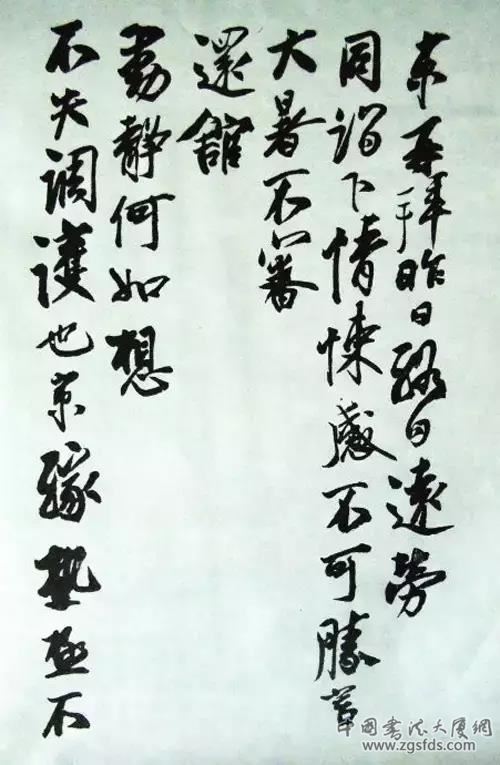 京再拜昨日終日遠勞
同詣下情悚感不可勝言
大暑不審
還館
動靜何如想
不失調護也京緣熱極不
中國書法大厦網
www.zgsfds.com